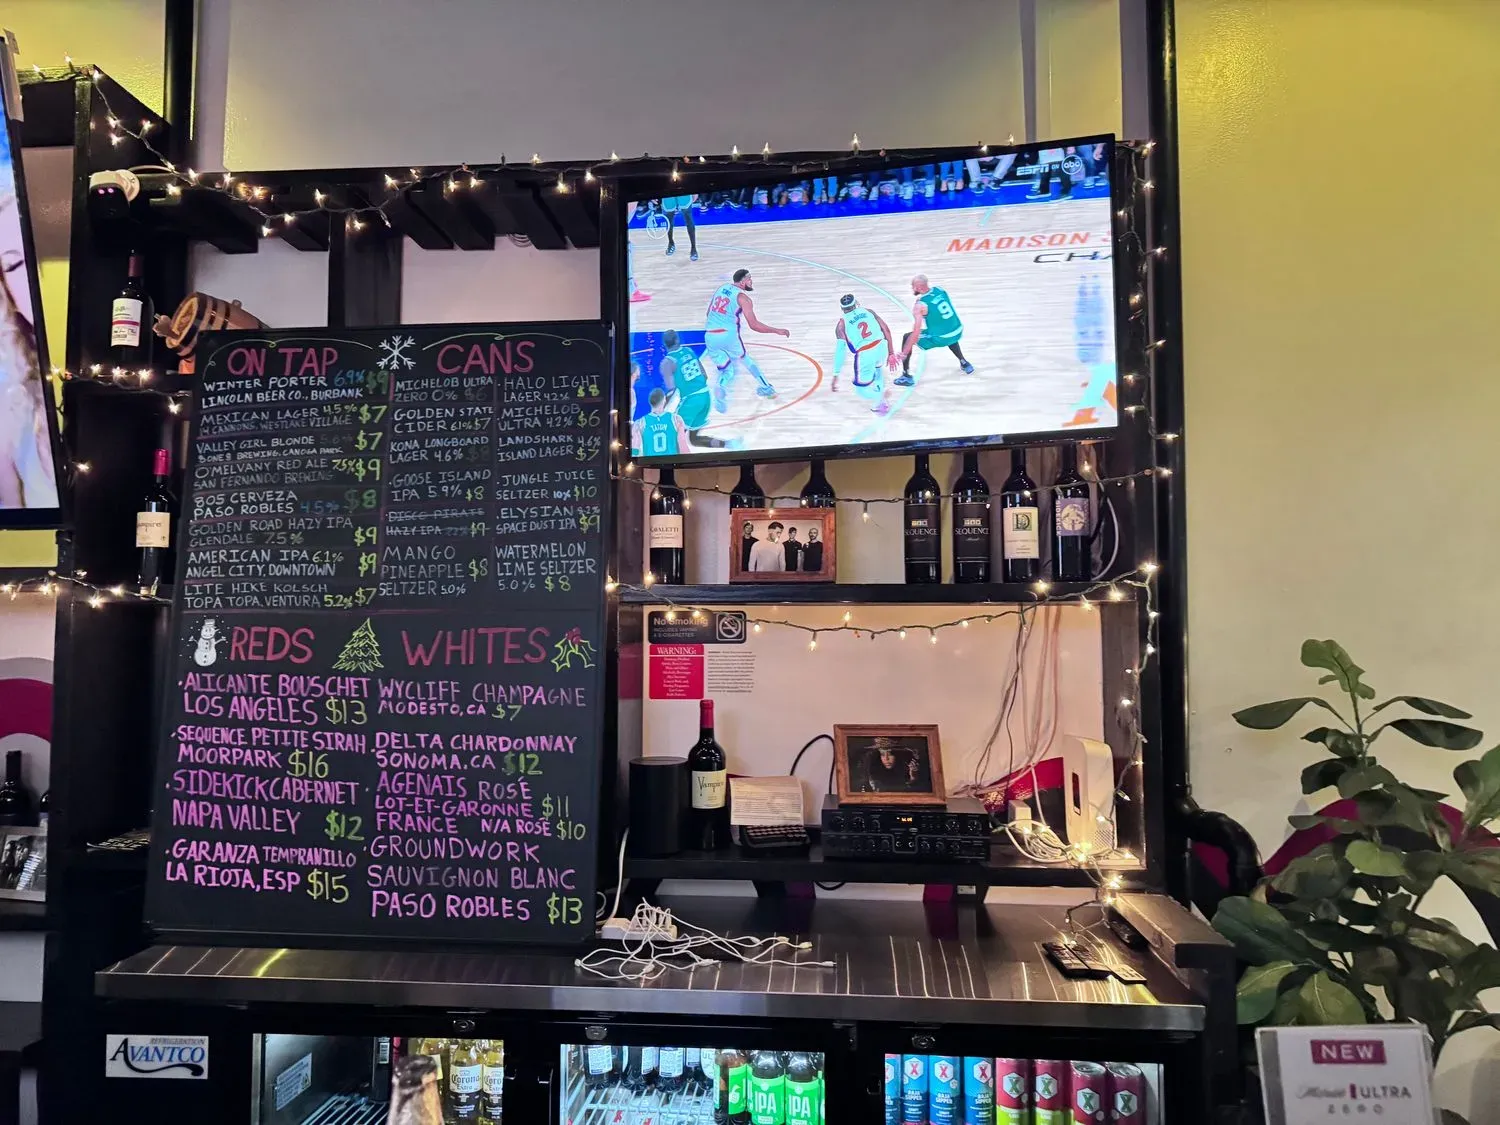 ON TAP
WINTER PORTER 6.9% $9
LINCOLN BEER CO., BURBANK
MEXICAN LAGER 4.5% $7
14 CANNONS, WESTLAKE VILLAGE
VALLEY GIRL BLONDE $7
BREWING, CANOGA PARK
O'MELVANY RED ALE 7.5% $9
SAN FERNANDO BREWING
805 CERVEZA $8
PASO ROBLES 4.5%
GOLDEN ROAD HAZY IPA $9
GLENDALE 7.5%
AMERICAN IPA 6.1% $9
ANGEL CITY, DOWNTOWN
LITE HIKE KOLSCH
TOPA TOPA, VENTURA 5.2% $7
CANS
MICHELOB ULTRA
ZERO 0% $6
GOLDEN STATE
CIDER 6.1% $7
KONA LONGBOARD
LAGER 4.6% $8
·GOOSE ISLAND
IPA 5.9% $8
DISCO PIRATE
HAZY IPA $9
MANGO
PINEAPPLE $8
SELTZER 5.0%
·HALO LIGHT
LAGER 4.2% $8
·MICHELOB
ULTRA 4.2% $6
LANDSHARK 4.6%
ISLAND LAGER $7
·JUNGLE JUICE
SELTZER 10% $10
ELYSIAN 8.2%
SPACE DUST IPA $9
WATERMELON
LIME SELTZER
5.0% $8
REDS
·ALICANTE BOUSCHET
LOS ANGELES $13
·SEQUENCE PETITE SIRAH
MOORPARK $16
·SIDEKICK CABERNET
NAPA VALLEY $12
·GARANZA TEMPRANILLO
LA RIOJA, ESP $15
WHITES
WYCLIFF CHAMPAGNE
MODESTO, CA $7
·DELTA CHARDONNAY
SONOMA, CA $12
·AGENAIS ROSÉ
LOT-ET-GARONNE $11
FRANCE N/A ROSÉ $10
·GROUNDWORK
SAUVIGNON BLANC
PASO ROBLES $13
ESPN ON abc
MADISON
92
2
9
88
TATUM
0
SEQUENCE
SEQUENCE
SIDEKICK
No Smoking
INCLUDES VAPING
& E-CIGARETTES
WARNING:
Vampire
Vampire
REFRIGERATION
AVANTCO
Corona
Extra
IPA
IPA
NEW
Michelob ULTRA
ZERO